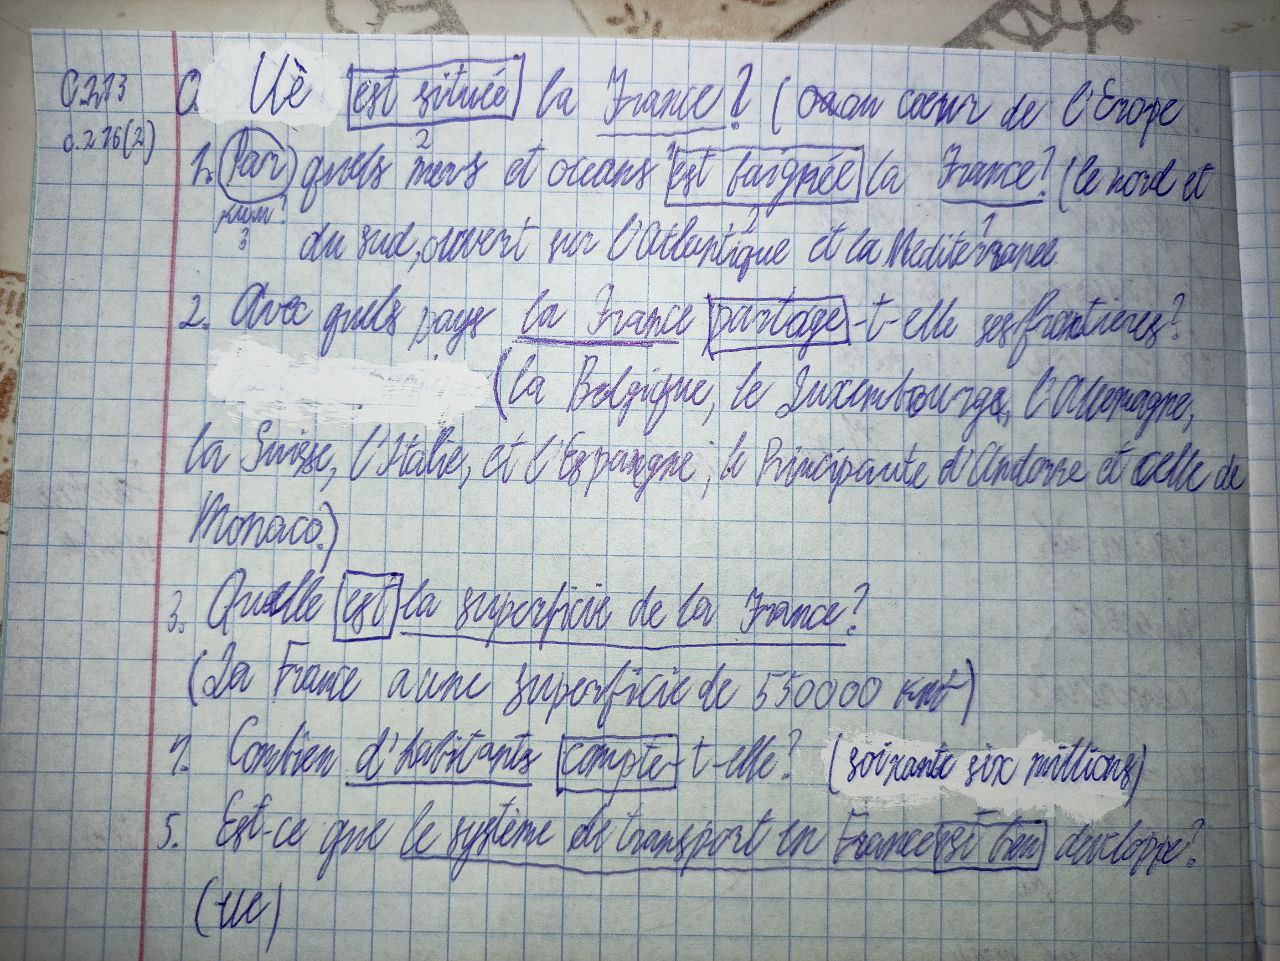 с.213 0. Uè est située la France? (au coeur de l'Erope
с.216(2) 1. Par quels mers et oceans est baignée la France? (le nord et
du sud, ouvert sur l'Atlantique et la Mediterranee
2. Avec quels pays la France partage-t-elle ses frontières?
(la Belgique, le Luxembourge, l'Allemagne,
la Suisse, l'Italie, et l'Espangne, le Principaute d'Andorre et celle de
Monaco.)
3. Quelle est la superficie de la France?
(La France a une superficie de 550000 км²)
4. Combien d'habitants compte-t-elle? (soixante six millions)
5. Est-ce que le système de transport en France est bien developpe?